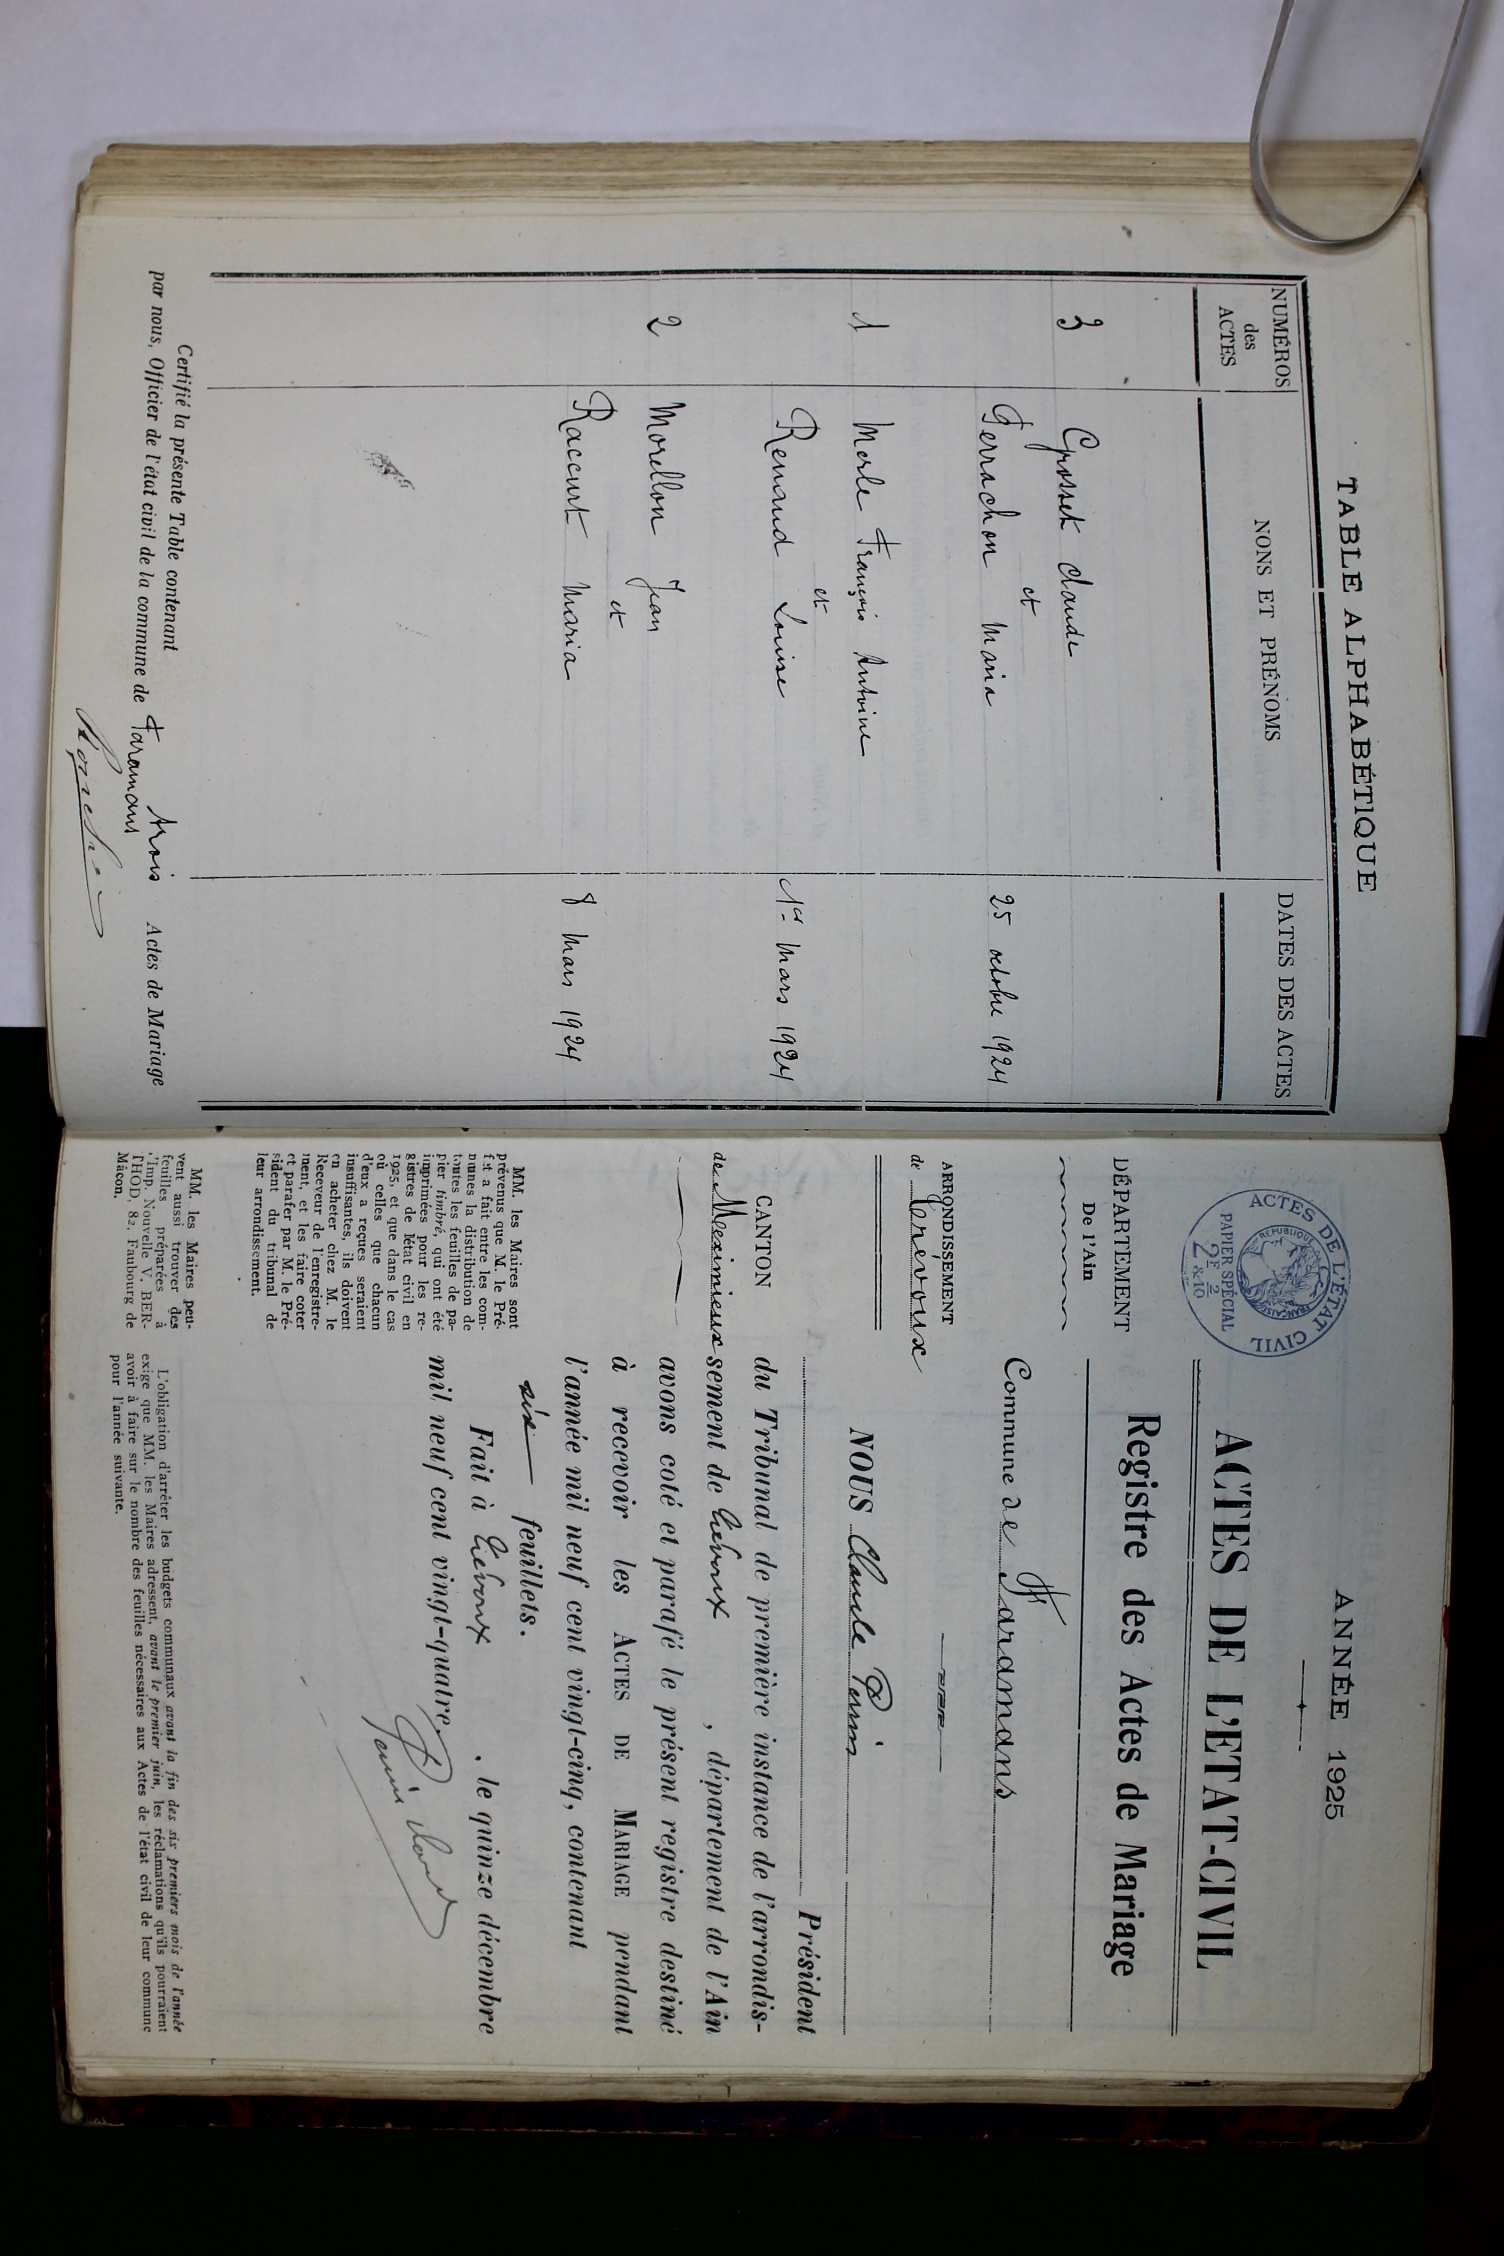 TABLE ALPHABÉTIQUE
NUMÉROS
des
ACTES
NONS ET PRÉNOMS
DATES DES ACTES
3
Grosset Claude
et
Perrachon Maria
25 octobre 1924
1
Morle François Antoine
et
Renaud Louise
1er Mars 1924
2
Morellon Jean
et
Raccurt Maria
8 Mars 1924
Certifié la présente Table contenant trois Actes de Mariage
par nous, Officier de l'état civil de la commune de Faramans
ANNÉE 1925
ACTES DE L'ÉTAT CIVIL
RÉPUBLIQUE FRANÇAISE
PAPIER SPÉCIAL
2F 2/10
2 & 10
DÉPARTEMENT
De l'Ain
ARRONDISSEMENT
de Trévoux
CANTON
de Meximieux
MM. les Maires sont
prévenus que M. le Pré-
fet a fait entre les com-
munes la distribution de
toutes les feuilles de pa-
pier timbré, qui ont été
imprimées pour les re-
gistres de l'état civil en
1925, et que dans le cas
où celles que chacun
d'eux a reçues seraient
insuffisantes, ils doivent
en acheter chez M. le
Receveur de l'enregistre-
ment, et les faire coter
et parafer par M. le Pré-
sident du tribunal de
leur arrondissement.
MM. les Maires peu-
vent aussi trouver des
feuilles préparées à
l'Imp. Nouvelle V. BER-
THOD, 82, Faubourg de
Mâcon.
ACTES DE L'ETAT-CIVIL
Registre des Actes de Mariage
Commune de Faramans
NOUS Claude Perrin
Président
du Tribunal de première instance de l'arrondis-
sement de Trévoux, département de l'Ain
avons coté et parafé le présent registre destiné
à recevoir les ACTES DE MARIAGE pendant
l'année mil neuf cent vingt-cinq, contenant
six feuillets.
Fait à Trévoux, le quinze décembre
mil neuf cent vingt-quatre.
L'obligation d'arrêter les budgets communaux avant la fin des six premiers mois de l'année
exige que MM. les Maires adressent, avant le premier juin, les réclamations qu'ils pourraient
avoir à faire sur le nombre des feuilles nécessaires aux Actes de l'état civil de leur commune
pour l'année suivante.